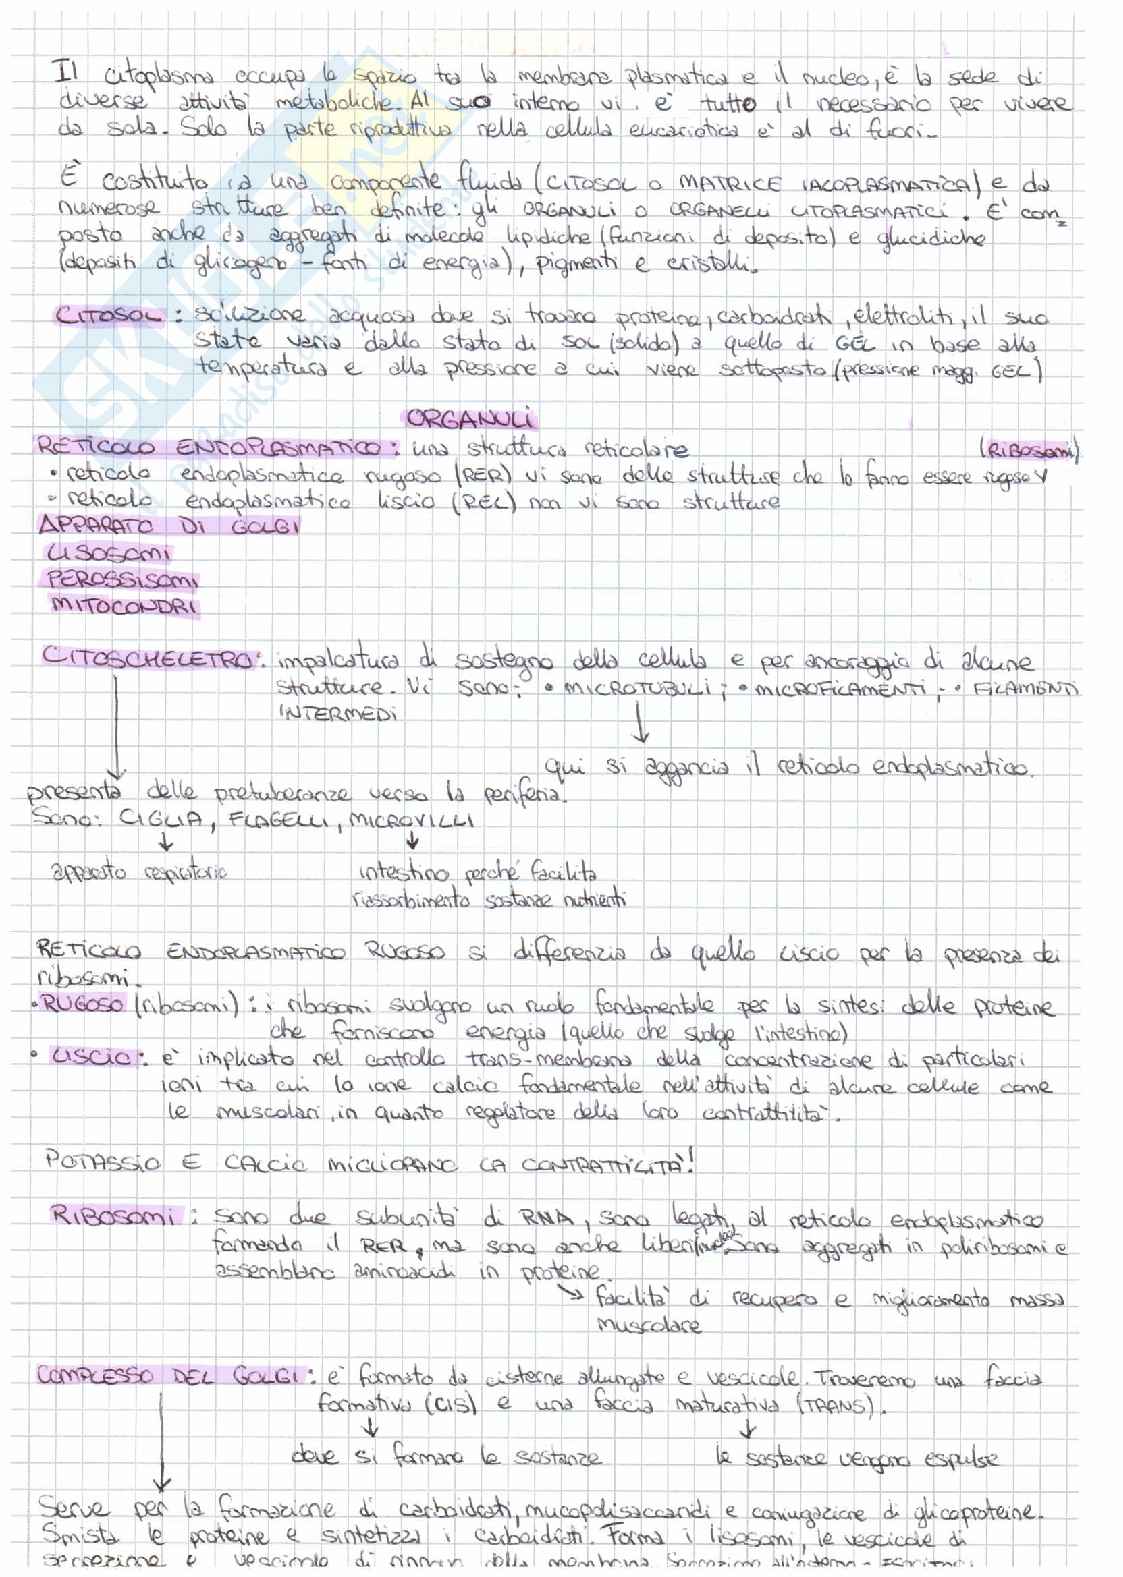 Il citoplasma occupa lo spazio tra la membrana plasmatica e il nucleo, è la sede di
diverse attività metaboliche. Al suo interno vi è tutto il necessario per vivere
da sola. Solo la parte riproduttiva nella cellula eucariotica è al di fuori.
È costituito da una componente fluida (CITOSOL o MATRICE IACOPLASMATICA) e da
numerose strutture ben definite: gli ORGANULI o ORGANELLI CITOPLASMATICI. È com=
posto anche da aggregati di molecole lipidiche (funzioni di deposito) e glucidiche
(depositi di glicogeno - fonti di energia), pigmenti e cristalli.
CITOSOL: soluzione acquosa dove si trovano proteine, carboidrati, elettroliti, il suo
stato varia dallo stato di SOL (solido) a quello di GEL in base alla
temperatura e alla pressione a cui viene sottoposto (pressione magg. GEL)
ORGANULI
RETICOLO ENDOPLASMATICO: una struttura reticolare (RIBOSOMI)
• reticolo endoplasmatico rugoso (RER) vi sono delle strutture che lo fanno essere rugoso V
• reticolo endoplasmatico liscio (REL) non vi sono strutture
APPARATO DI GOLGI
LISOSOMI
PEROSSISOMI
MITOCONDRI
CITOSCHELETRO: impalcatura di sostegno della cellula e per ancoraggio di alcune
strutture. Vi sono: • MICROTUBULI; • MICROFILAMENTI; • FILAMENTI
INTERMEDI
qui si aggancia il reticolo endoplasmatico.
presenta delle protuberanze verso la periferia.
Sono: CIGLIA, FLAGELLI, MICROVILLI
apparato respiratorio intestino perché facilita
riassorbimento sostanze nutrienti
RETICOLO ENDOPLASMATICO RUGOSO si differenzia da quello liscio per la presenza dei
ribosomi.
• RUGOSO (ribosomi): i ribosomi svolgono un ruolo fondamentale per la sintesi delle proteine
che forniscono energia (quello che svolge l'intestino)
• LISCIO: è implicato nel controllo trans-membrana della concentrazione di particolari
ioni tra cui lo ione calcio fondamentale nell'attività di alcune cellule come
le muscolari, in quanto regolatore della loro contrattilità.
POTASSIO E CALCIO MIGLIORANO LA CONTRATTILITÀ!
RIBOSOMI: sono due subunità di RNA, sono legati al reticolo endoplasmatico
formando il RER, ma sono anche liberi. Sono aggregati in poliribosomi e
assemblano aminoacidi in proteine.
facilità di recupero e miglioramento massa
muscolare
COMPLESSO DEL GOLGI: è formato da cisterne allungate e vescicole. Troveremo una faccia
formativa (CIS) e una faccia maturativa (TRANS).
dove si formano le sostanze le sostanze vengono espulse
Serve per la formazione di carboidrati, mucopolisaccaridi e coniugazione di glicoproteine.
Smista le proteine e sintetizza i carboidrati. Forma i lisosomi, le vescicole di